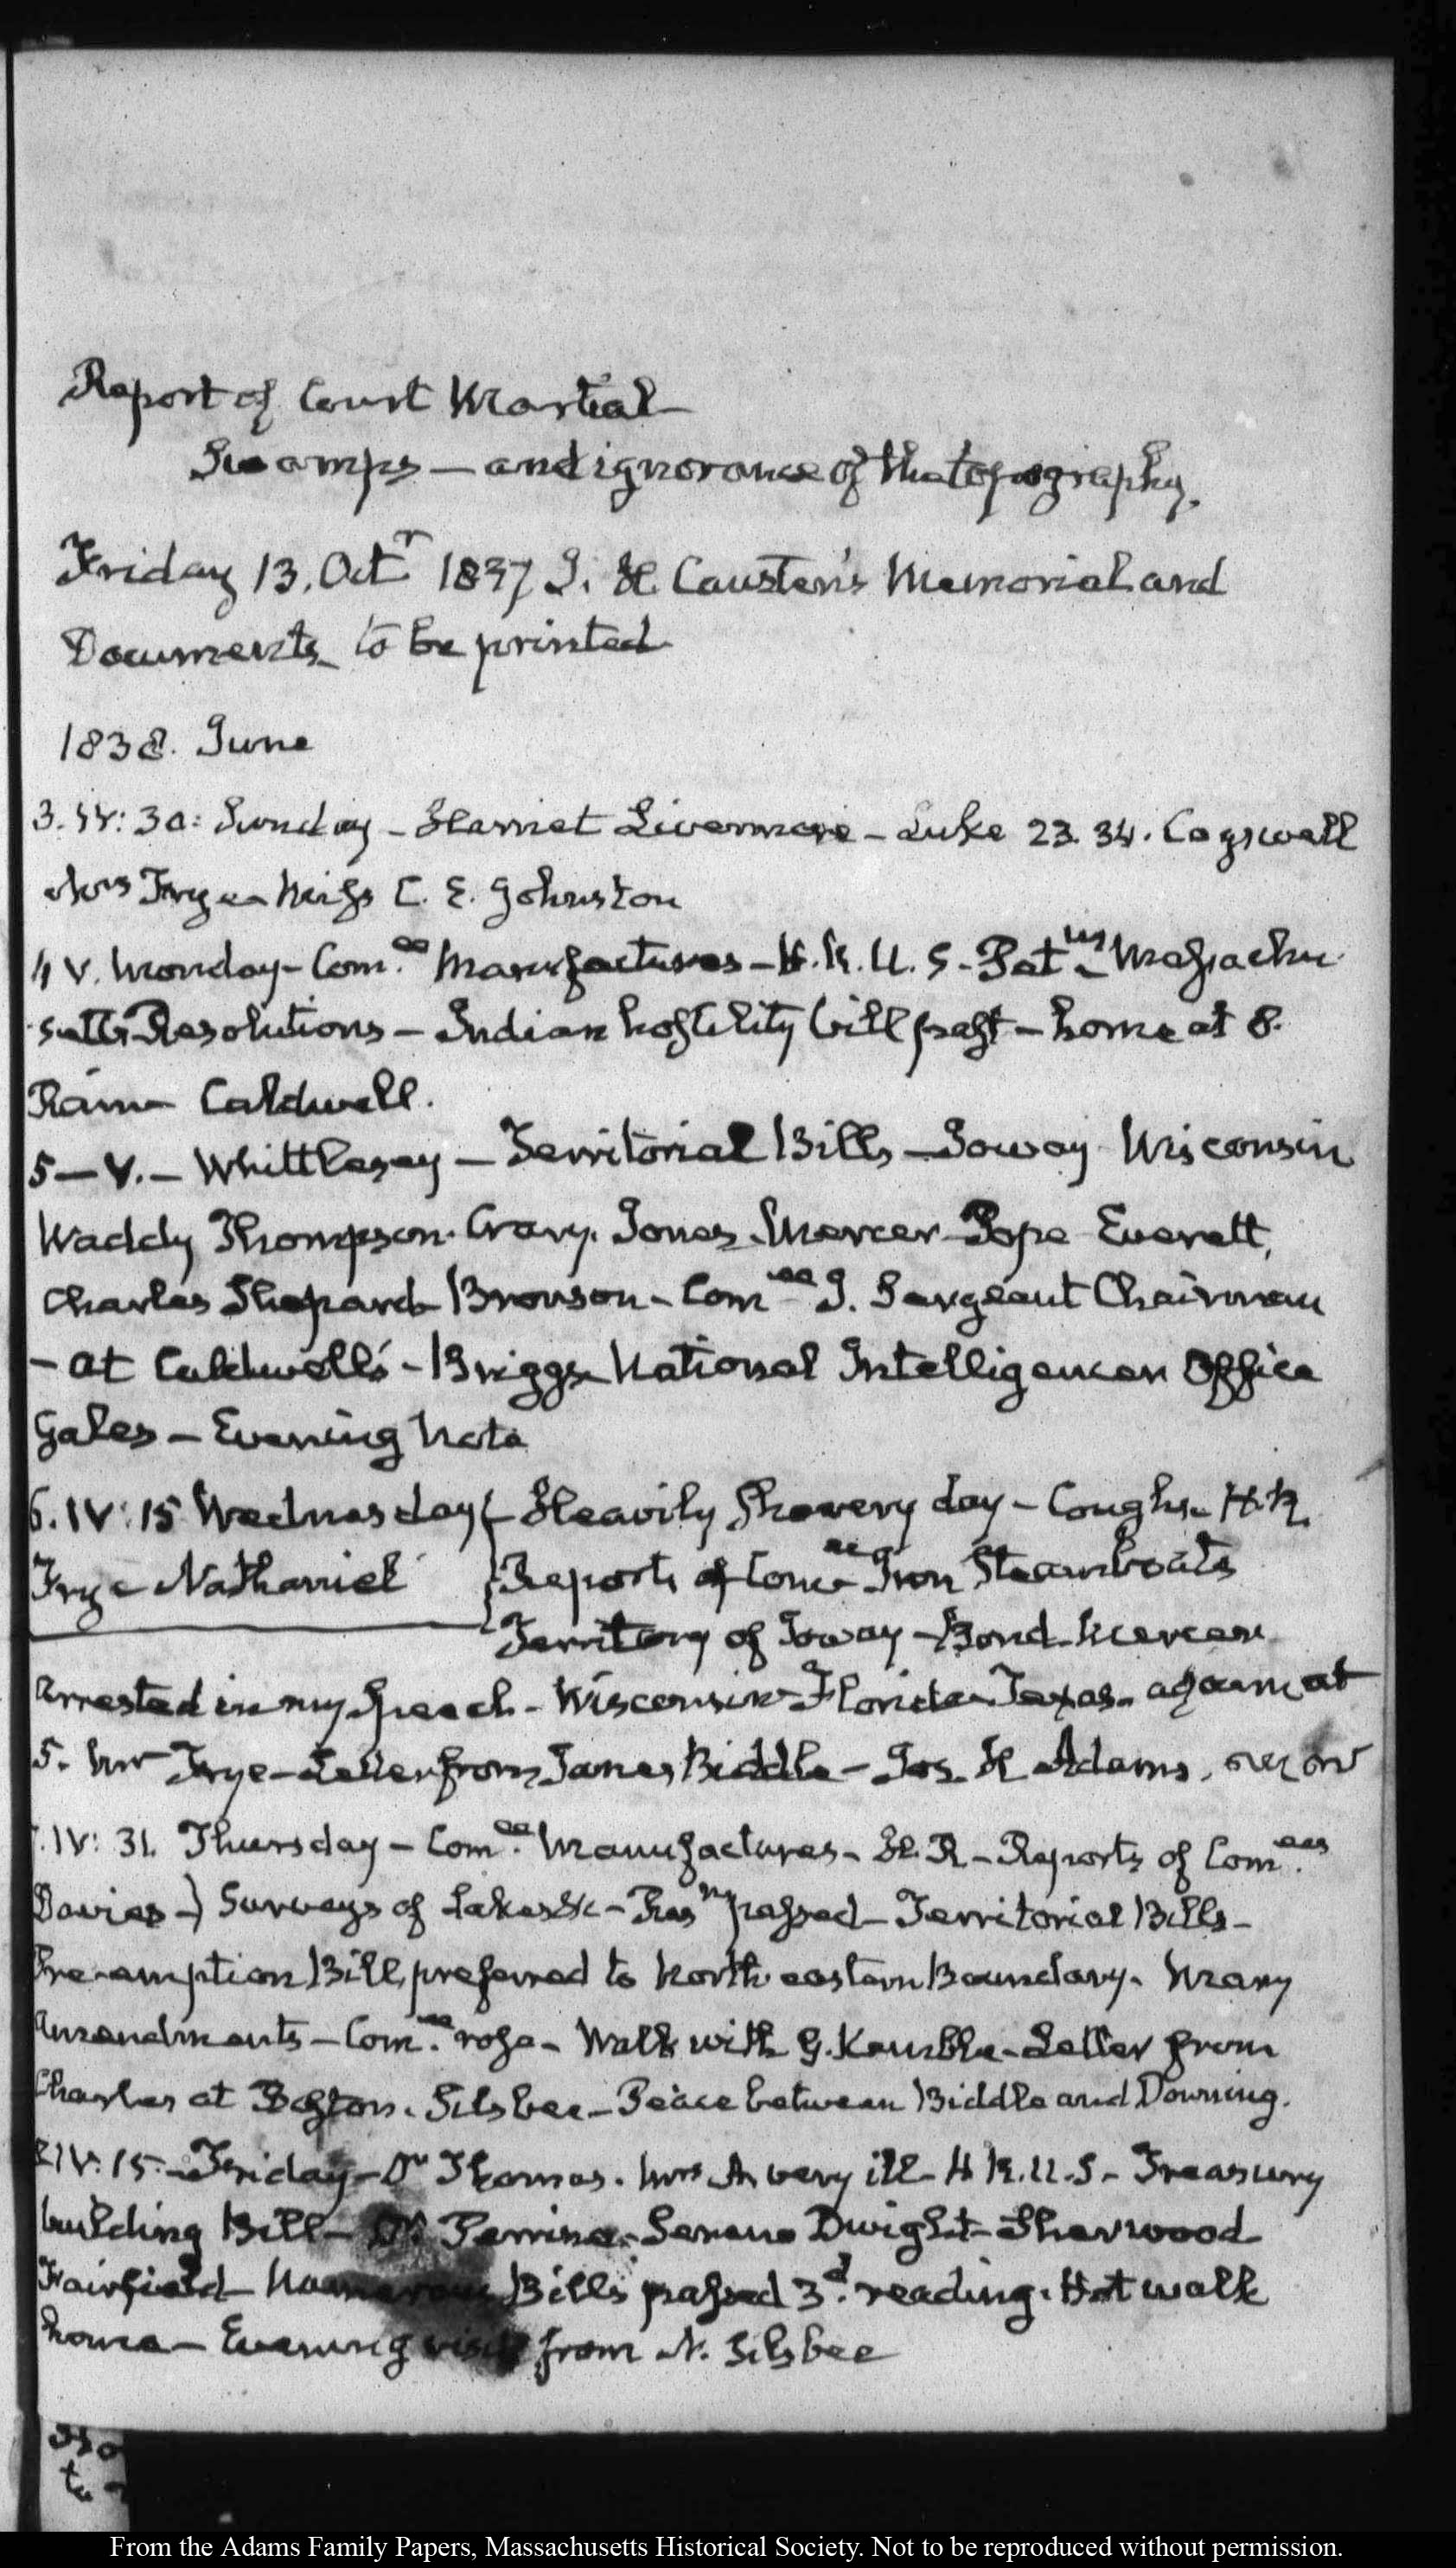 Report of Court Martial
Swamps — and ignorance of the topography.
Friday 13. Octr 1837 J. H. Causten's Memorial and
Documents to be printed
1838. June
3. IV: 30: Sunday — Harriet Livermore — Luke 23. 34. Cogswell
Mrs Frye — Miss C. E. Johnston
4 V. Monday — Comee Manufactures — H. R. U. S. — Petns Massachu-
setts Resolutions — Indian hostility bill past — home at 8.
Rain — Caldwell.
5 — V. — Whittlesey — Territorial Bills — Ioway Wisconsin
Waddy Thompson. Crary. Jones. Mercer Pope Everett,
Charles Shepard Bronson — Comee J. Sergeant Chairman
— at Caldwell's — Briggs National Intelligencer Office
Gales — Evening Note
6. IV: 15 Wednesday Heavily Showery day — Cough — H. R.
Frye Nathaniel Reports of Comee Iron Steamboats
Territory of Ioway — Bond — Mercer
arrested in my Speech — Wisconsin — Florida — Texas — again at
5. Mr Frye — Letter from James Biddle — Jos. H Adams,
IV: 31. Thursday — Comee Manufactures — H. R — Reports of Comees
Davies — Surveys of Lakes &c — Resn passed — Territorial Bills —
Pre-emption Bill, preferred to North eastern Boundary. Many
Amendments — Comee rose — Walk with G. Kemble — Letter from
Charles at Boston. Silsbee — Peace between Biddle and Downing.
8 IV: 15. — Friday — Dr Thomas. Mrs A. very ill — H R. U. S. — Treasury
building Bill — Dr Perrine — Sereno Dwight — Sherwood
Fairfield — Numerous Bills passed 3d. reading. Hot walk
home — Evening visit from N. Silsbee
From the Adams Family Papers, Massachusetts Historical Society. Not to be reproduced without permission.